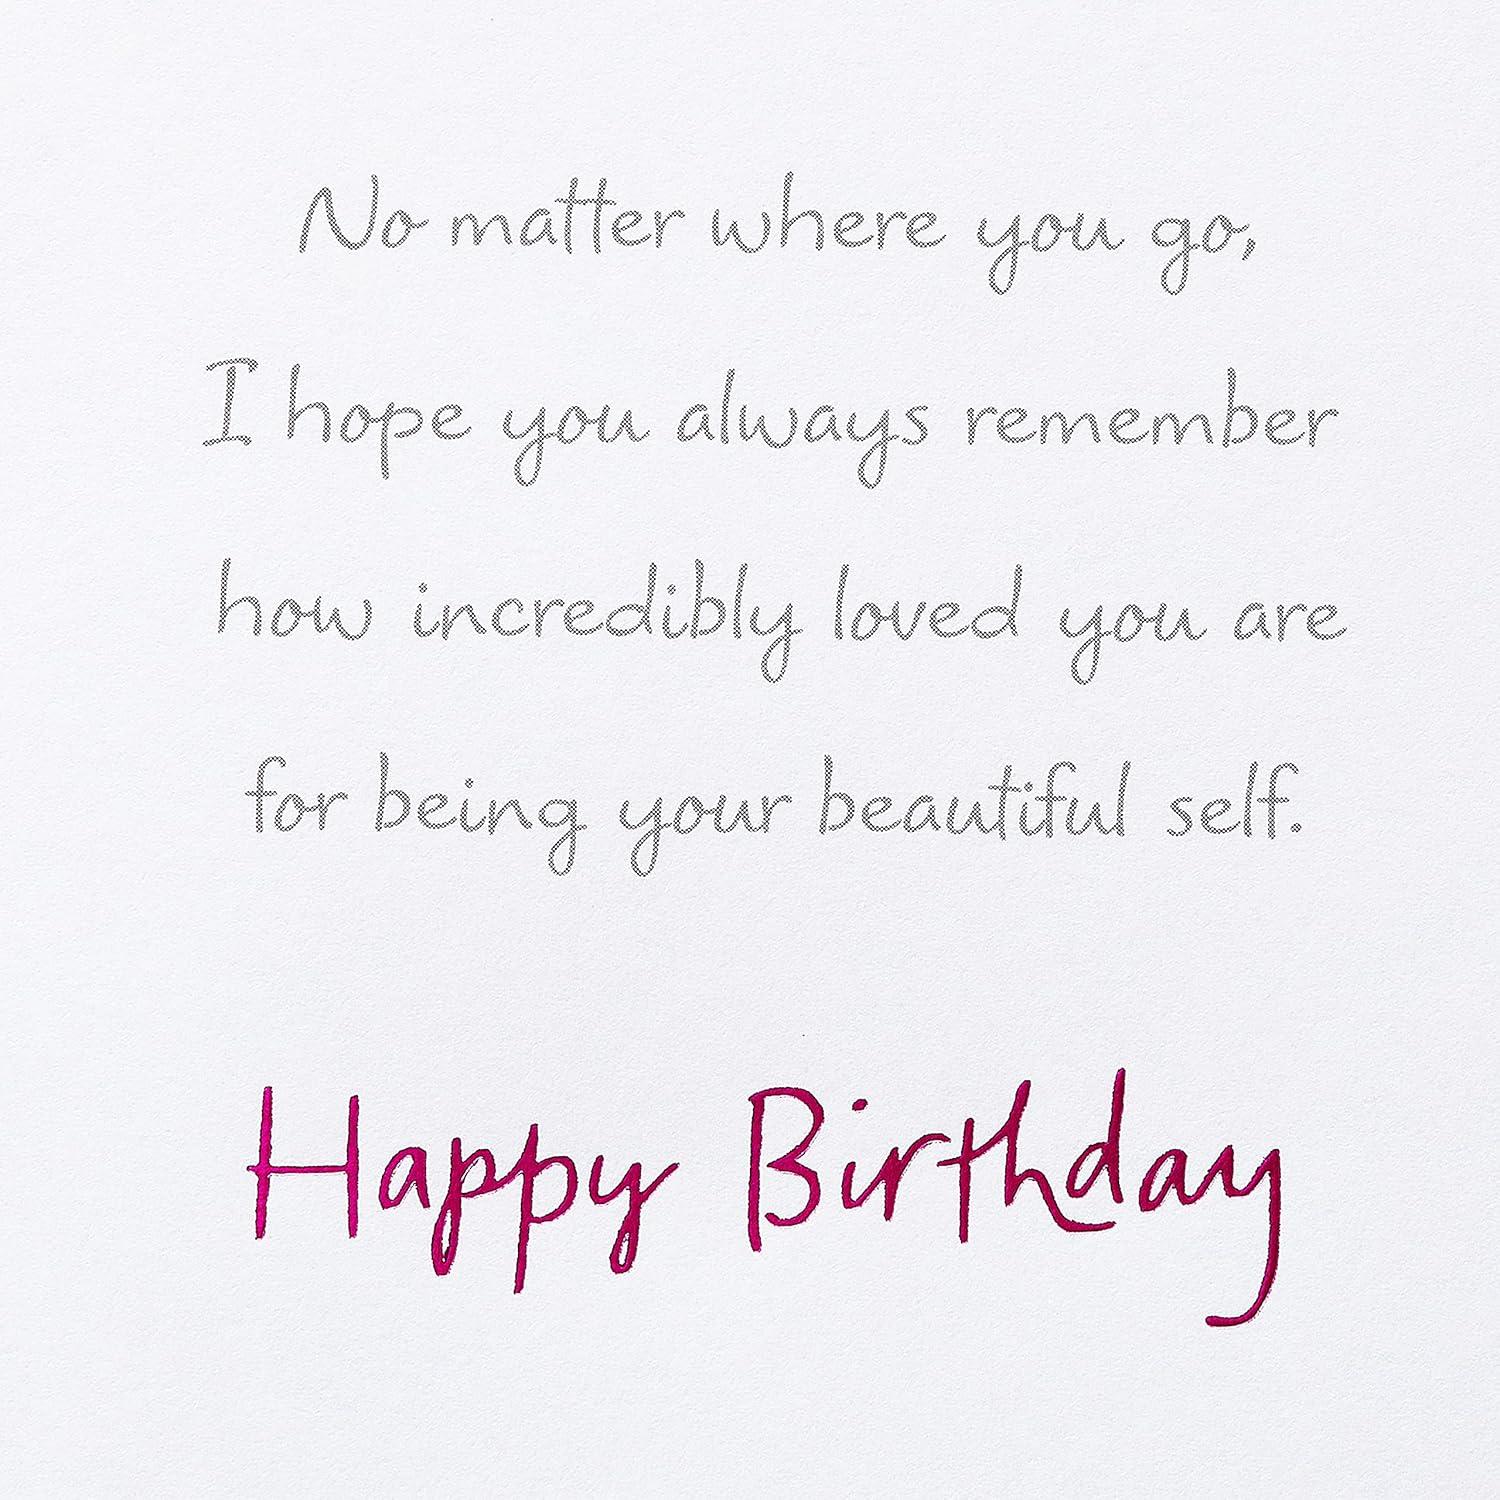 No matter where you go,
I hope you always remember
how incredibly loved you are
for being your beautiful self.
Happy Birthday